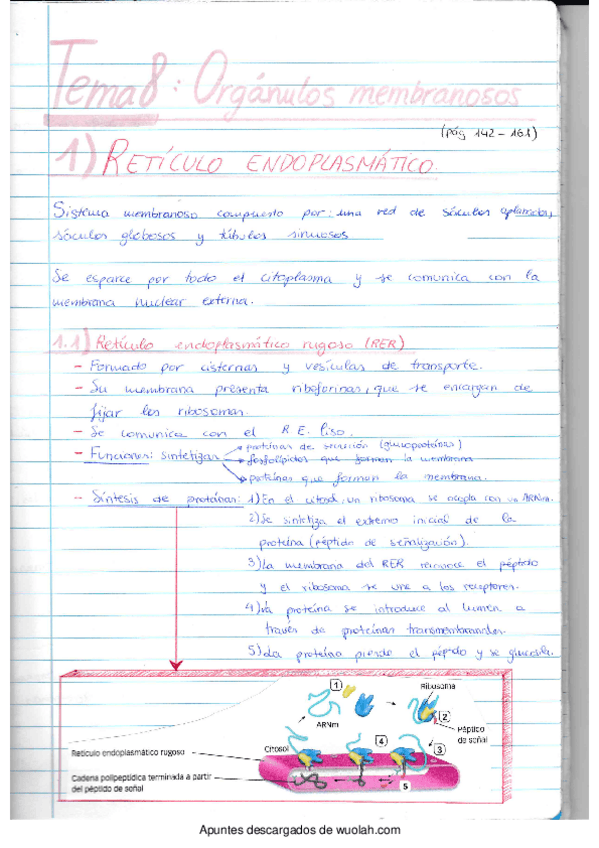 Tema 8: Orgánulos membranosos
(pág 142 - 161)
1) RETÍCULO ENDOPLASMÁTICO.
Sistema membranoso compuesto por: una red de sáculos aplanados,
sáculos globosos y túbulos sinuosos
Se esparce por todo el citoplasma y se comunica con la
membrana nuclear externa.
1.1) Retículo endoplasmático rugoso (RER)
- Formado por cisternas y vesículas de transporte.
- Su membrana presenta riboforinas, que se encargan de
fijar los ribosomas.
- Se comunica con el R.E. liso.
proteínas de secreción (glucoproteínas)
- Funciones: sintetizan fosfolípidos que forman la membrana
proteínas que forman la membrana.
- Síntesis de proteínas: 1) En el citosol, un ribosoma se acopla con un ARNm.
2) Se sintetiza el extremo inicial de la
proteína (péptido de señalización).
3) La membrana del RER reconoce el péptido
y el ribosoma se une a los receptores.
4) La proteína se introduce al lumen a
través de proteínas transmembranales.
5) La proteína pierde el péptido y se glucosila.
1
Ribosoma
ARNm
2
Péptico
de señal
Citosol
4
3
Retículo endoplasmático rugoso
Cadena polipeptídica terminada a partir
del péptido de señal
5
Apuntes descargados de wuolah.com